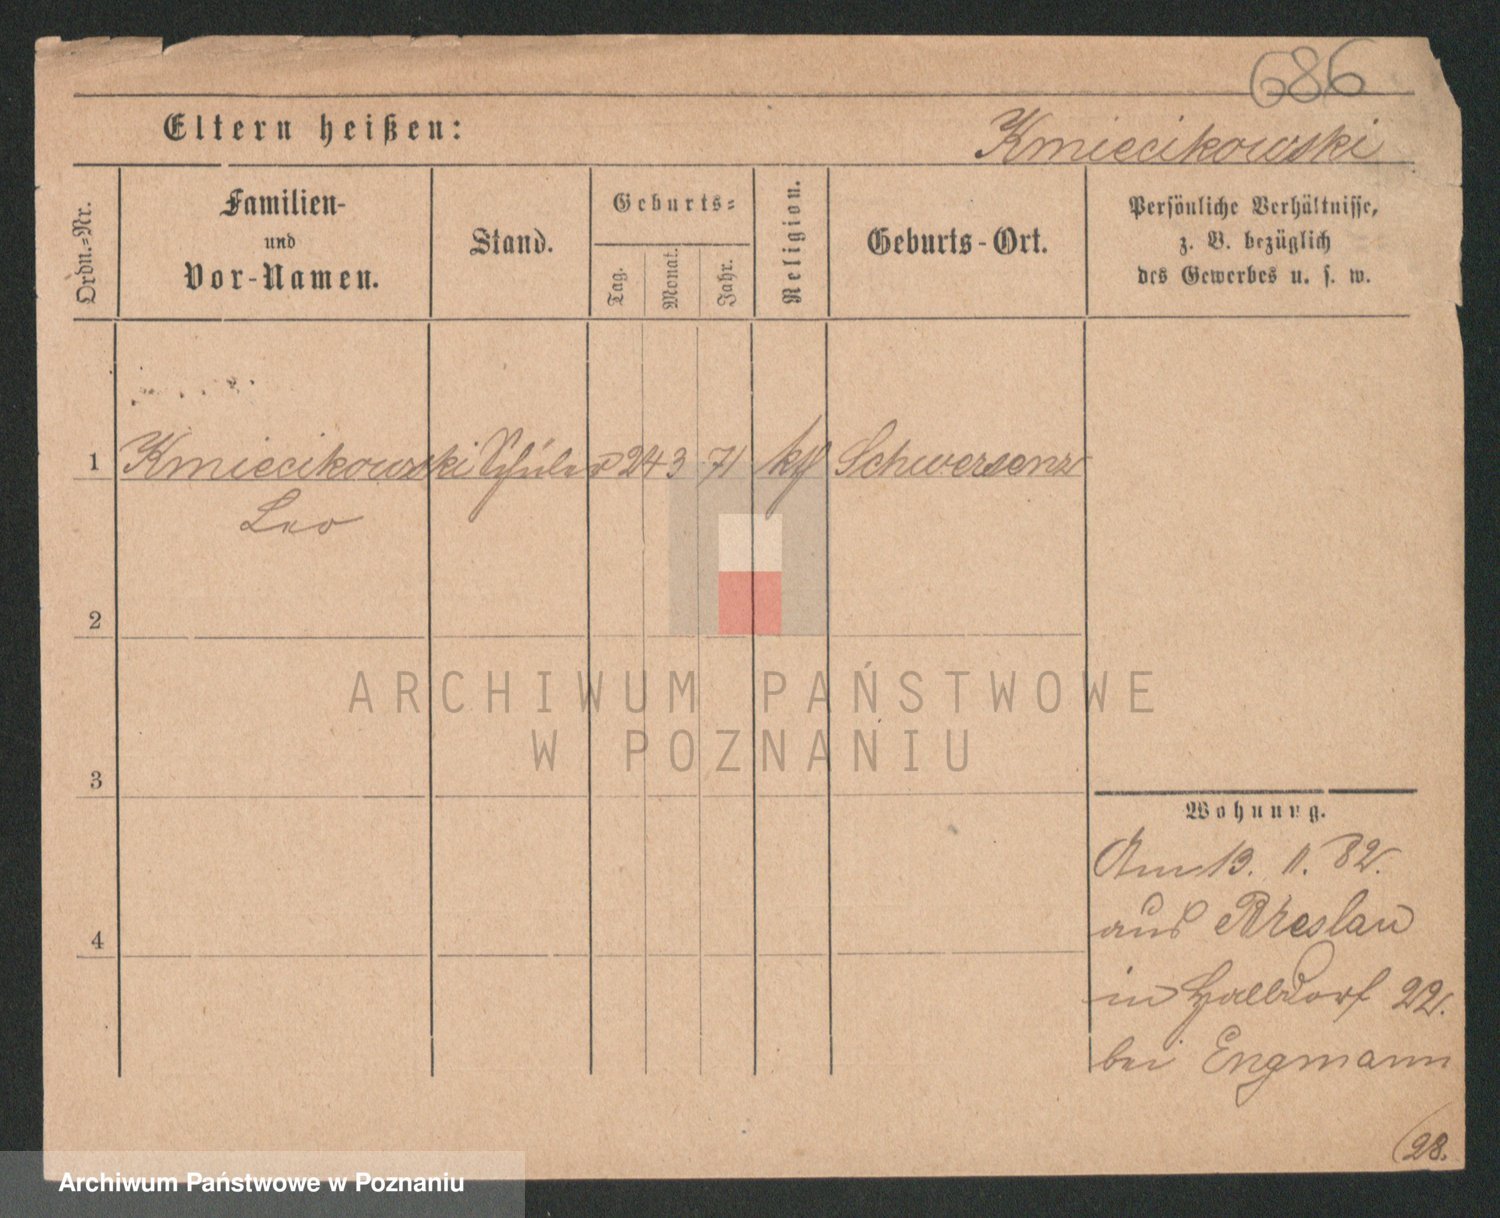 686
Eltern heißen:
Kmiecikowski
Ordn.=Nr.
Familien-
und
Vor-Namen.
Stand.
Geburts=
Tag.
Monat.
Jahr.
Religion.
Geburts-Ort.
Persönliche Verhältnisse,
z. B. bezüglich
des Gewerbes u. s. w.
1 Kmiecikowski Schüler 24 3 71 kth Schwersenz
Leo
2
ARCHIWUM PAŃSTWOWE
W POZNANIU
3
Wohnung.
Am 13. 11. 82.
aus Breslau
4
in Halbdorf 22.
bei Engmann
28.
Archiwum Państwowe w Poznaniu